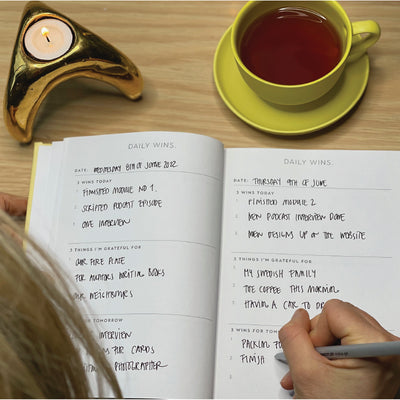 DAILY WINS.
DATE: WEDNESDAY 8TH OF JUNE 2022
3 WINS TODAY
1. FINISHED MODULE NO 1.
2. SCRIPTED PODCAST EPISODE
3. ONE INTERVIEW
3 THINGS I'M GRATEFUL FOR
OUR FIRE PLACE
FOR AUTHORS WRITING BOOKS
OUR NEIGHBOURS
FOR TOMORROW
INTERVIEW
FOR CARDS
PHOTOGRAPHER
DAILY WINS.
DATE: THURSDAY 9TH OF JUNE
3 WINS TODAY
1. FINISHED MODULE 2
2. NEW PODCAST INTERVIEW DONE
3. NEW DESIGNS UP ON THE WEBSITE
3 THINGS I'M GRATEFUL FOR
1. MY SWEDISH FAMILY
2. THE COFFEE THIS MORNING
3. HAVING A CAR TO
3 WINS FOR
1. PACKING
2. FINISH
3.